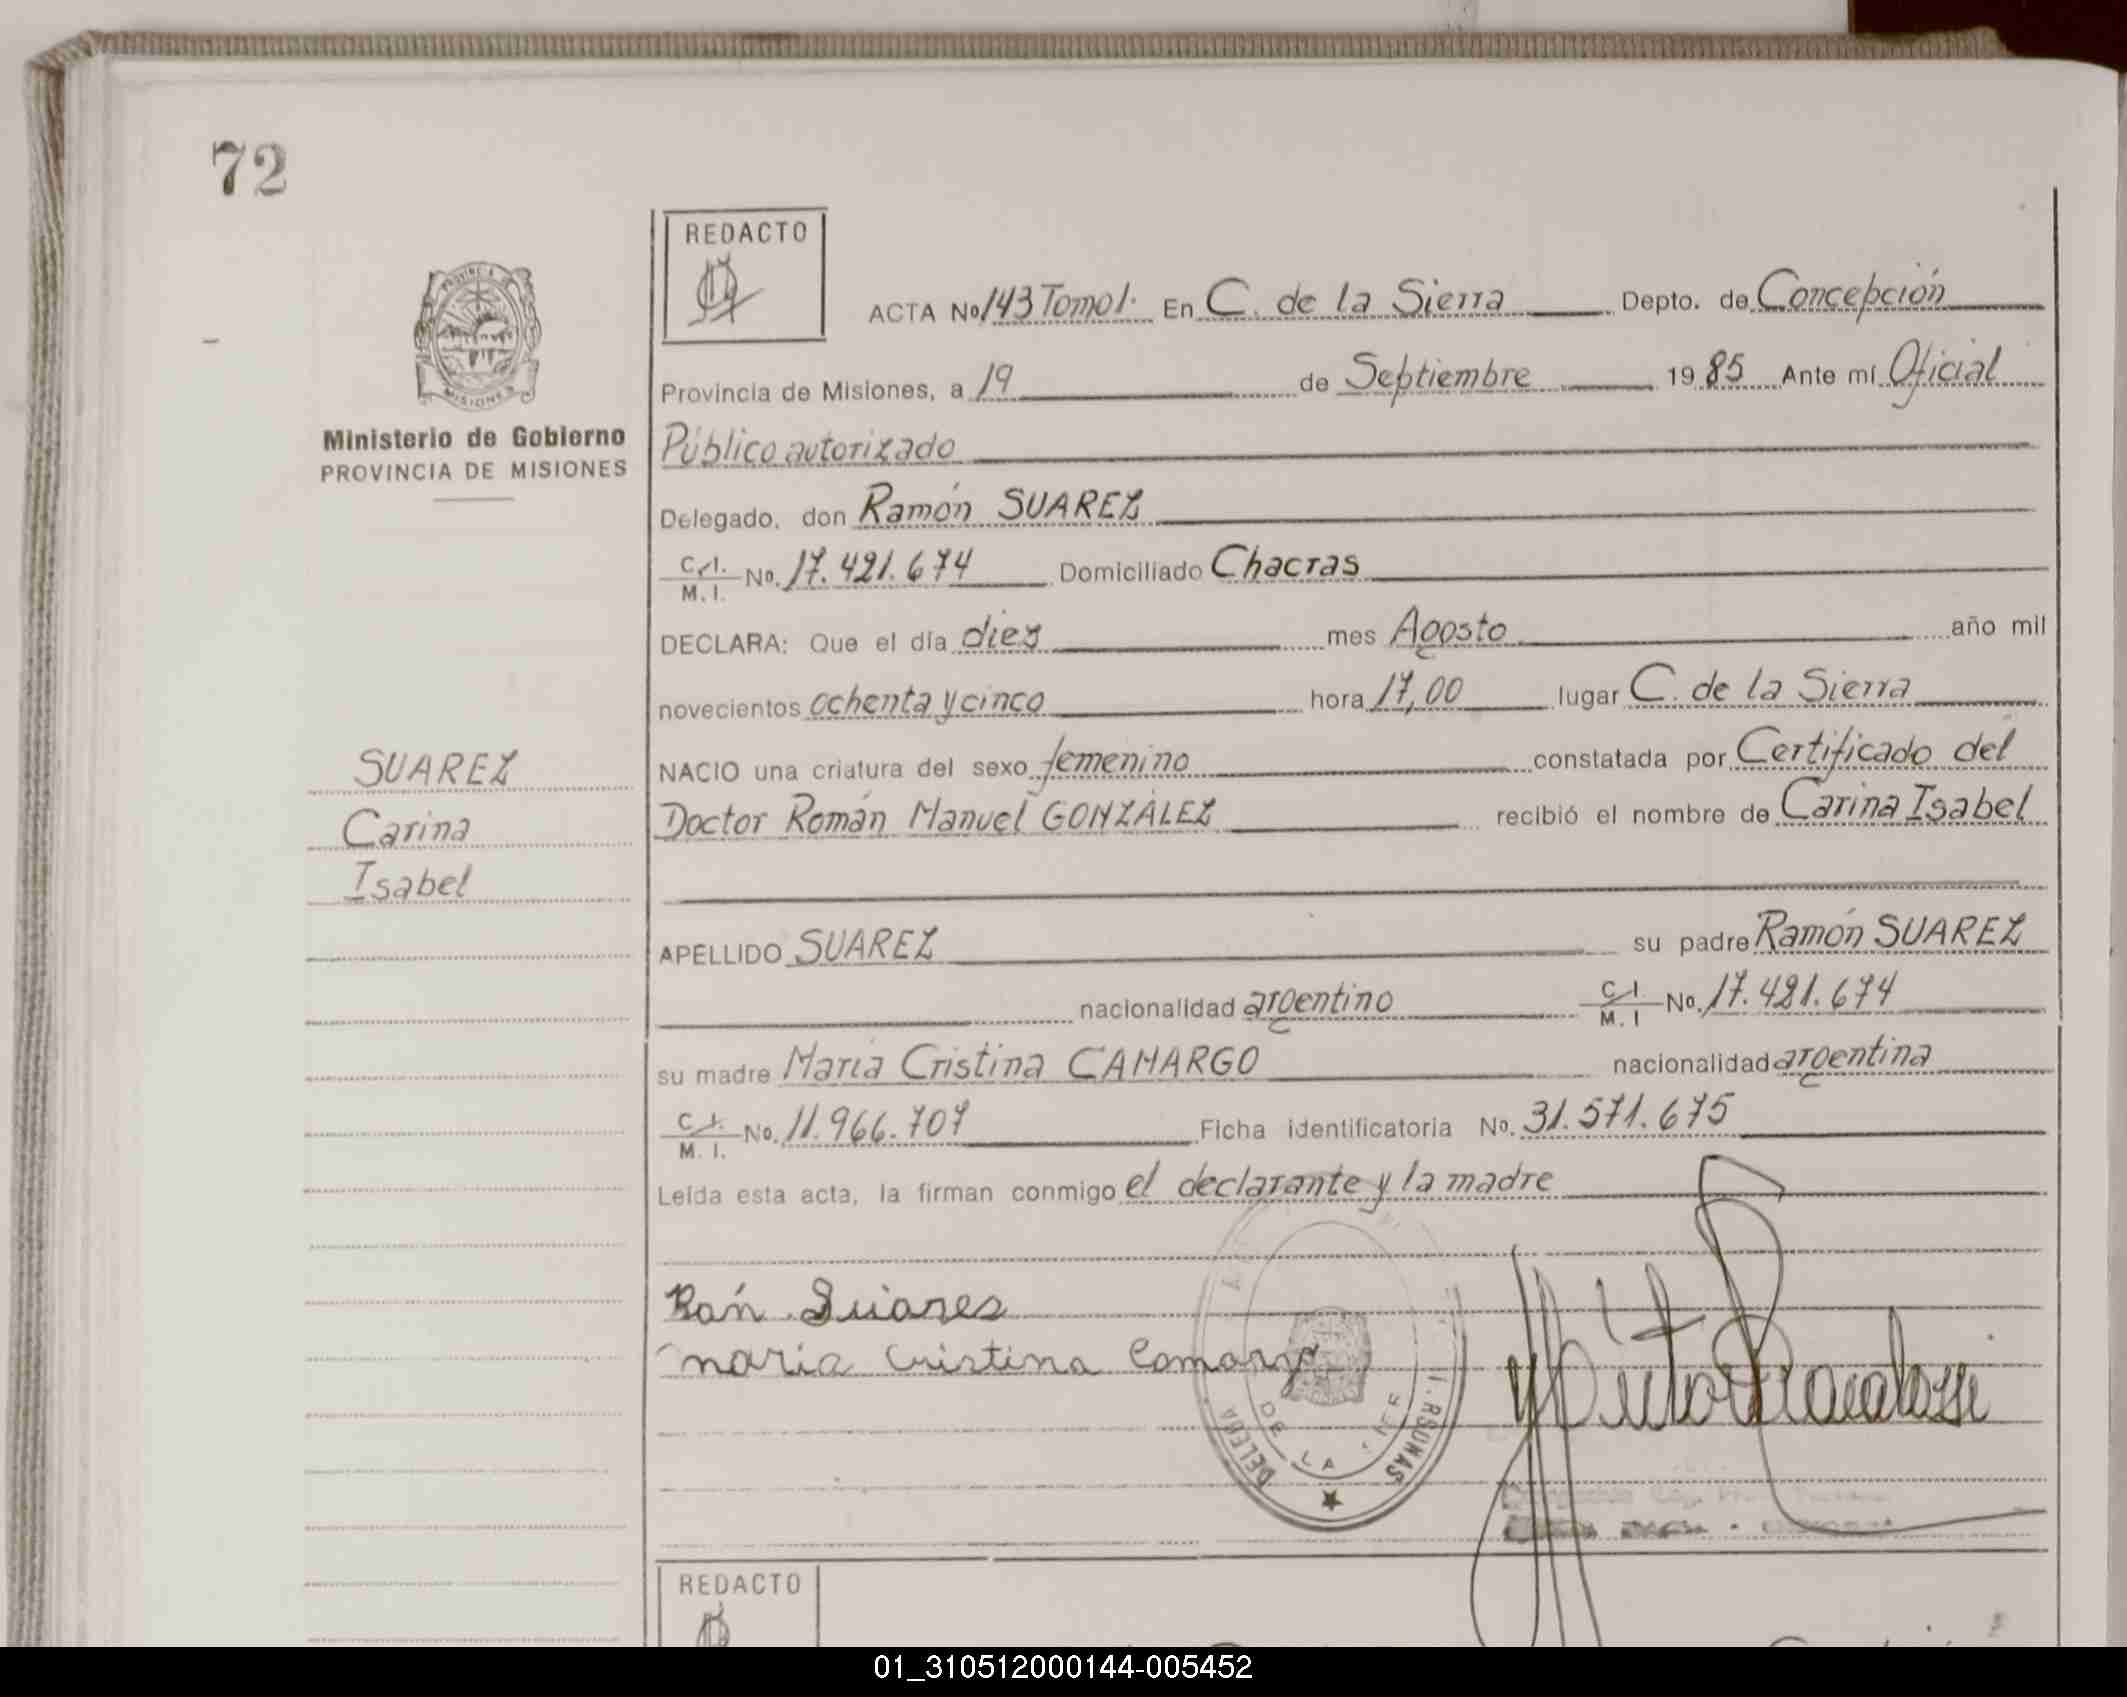 72
REDACTO
ACTA No 143 Tomo 1. En C. de la Sierra Depto. de Concepción
Provincia de Misiones, a 19 de Septiembre 1985 Ante mí Oficial
Ministerio de Gobierno
PROVINCIA DE MISIONES
Público autorizado
Delegado, don Ramón SUAREZ
C.I. M.I. No. 17.421.674 Domiciliado Chacras
DECLARA: Que el día diez mes Agosto año mil
novecientos ochenta y cinco hora 17,00 lugar C. de la Sierra
SUAREZ
Carina
Isabel
NACIO una criatura del sexo femenino constatada por Certificado del
Doctor Román Manuel GONZÁLEZ recibió el nombre de Carina Isabel
APELLIDO SUAREZ su padre Ramón SUAREZ
nacionalidad argentino C.I. M.I No. 17.421.674
su madre María Cristina CAMARGO nacionalidad argentina
C.I. M.I. No. 11.966.707 Ficha identificatoria No. 31.571.675
Leída esta acta, la firman conmigo el declarante y la madre
Ramón Suares
maria Cristina Camargo
DE LA
REDACTO
01_310512000144-005452